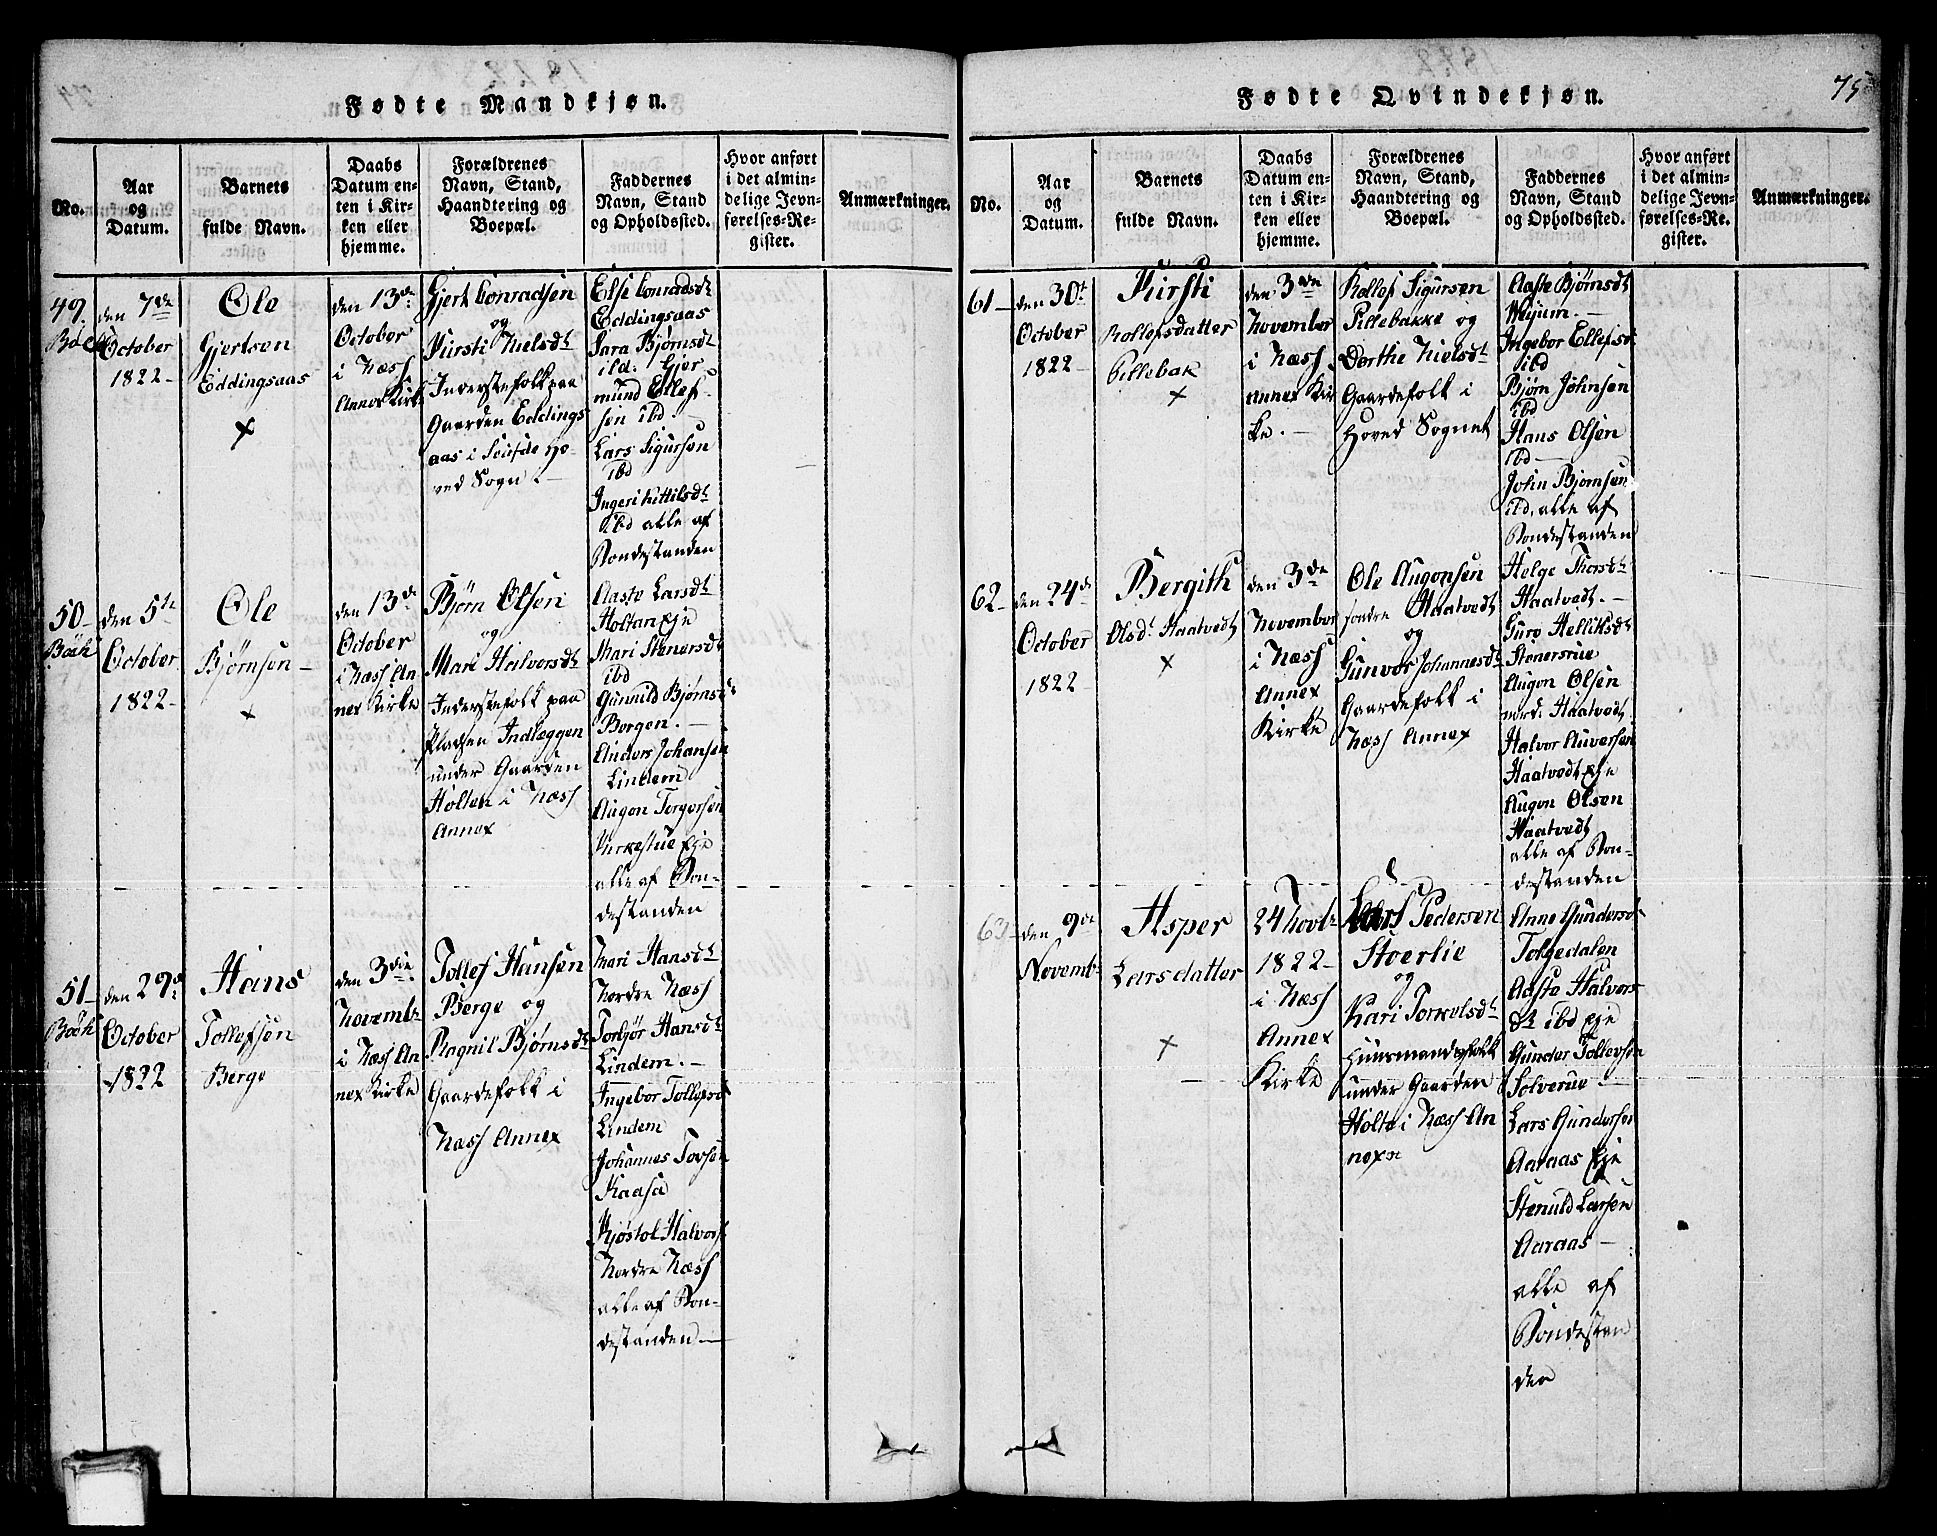 75
Fødte Mandkjøn.
No.
Aar
og
Datum.
Barnets
fulde Navn.
Daabs
Datum en-
ten i Kir-
ken eller
hjemme.
Forældrenes
Navn, Stand,
Haandtering og
Boepæl.
Faddernes
Navn, Stand
og Opholdssted.
Hvor anført
i det almin-
delige Jevn-
førelses-Re-
gister.
Anmærkninger.
49.
den 7de
October
1822-
Ole
Gjertsen
Eddingsaas
+
den 13de
October
i Næss
Annex Kirke
Gjert Conradsen
og
Kirsti Nielsdt
Inderstefolk paa
Gaarden Eddings
aas i Ho-
ved Sogn.
Else Conradsdt
Eddingsaas
Sara Bjørnsdt
ibd. Gjer
mund Ellef
sen ibd
Lars Sigursen
ibd
Ingeri Kittilsdt
ibd alle af
Bondestanden
50-
den 5te
October
1822-
Ole
Bjørnsen-
+
den 13de
October
i Næss An
nex Kirke
Bjørn Olsen
og
Mari Halvorsdt
Inderstefolk paa
Pladsen Indlæggen
under Gaarden
Holten i Næss
Annex
Aaste Larsdt
Holtan Eje
Mari Stenersdt
ibd
Gunnild Bjørnsdt
Borgen.-
Anders Johansen
Lindem
Augon Torgersen
Kirkestue Eje
alle af Bon-
destanden
51-
den 29de
October
1822
Hans
Tollefsen
Berge
den 3die
Novembr
i Næss An
nex Kirke
Tollef Hansen
Berge og
Ragnil Bjørnsdt
Gaardefolk i
Næss Annex
Mari Hansdt
Nordre Næss
Torbjør Hansdt
Lindem.-
Ingebor Tollefsdt
Lindem
Johannes Torsen
Kaasa
Kjøstol Halvors
Nordre Næss
alle af Bon-
destanden-
Fødte Qvindekjøn.
No.
Aar
og
Datum.
Barnets
fulde Navn.
Daabs
Datum en-
ten i Kir-
ken eller
hjemme.
Forældrenes
Navn, Stand,
Haandtering og
Boepæl.
Faddernes
Navn, Stand
og Opholdssted.
Hvor anført
i det almin-
delige Jevn-
førelses-Re-
gister.
Anmærkninger.
61-
den 30t
October
1822-
Kirsti
Rollefsdatter
Pillebak
+
den 3de
November
i Næss
Annex Kir
ke.-
Rollef Sigursen
Pillebakke og
Dorthe Nielsdt
Gaardefolk i
Hoved Sognet
Aaste Bjørnsdt
Ingebor Ellefsd
ibd
Bjørn Johnsen
ibd
Hans Olsen
ibd-
John Bjørnsen
ibd, alle af
Bondestanden
62-
den 24de
October
1822-
Bergith
Olsdt Haatvedt
+
den 3de
November
i Næss
Annex
Kirke
Ole Augonsen
søndre Haatvedt
og
Gunvor Johannesdt
Gaardefolk i
Næss Annex
Helge Thorsdt
Haatvedt.-
Guro Helliksdt
Stenersrue
Augon Olsen
nord. Haatvedt
Halvor Auversen
Haatvedt Eje
Augon Olsen
Haatvedt
alle af Bon-
destanden
63-
den 9de
Novemb
Asper
Larsdatter
+
24 Novbr
1822-
i Næss
Annex
Kirke
Lars Pedersen
Stoerlie
og
Kari Torkelsdt
Huusmandsfolk
under Gaarden
Holte i Næss An
nexe
Anne Gundersd
Tolgedalen
Aaste Halvors
dt ibd Eje
Gunder Tollevsen
Solverue.-
Lars Gundersen
Aaraas Eje
Stenuld Larsen
Aaraas-
alle af
Bondestan
den